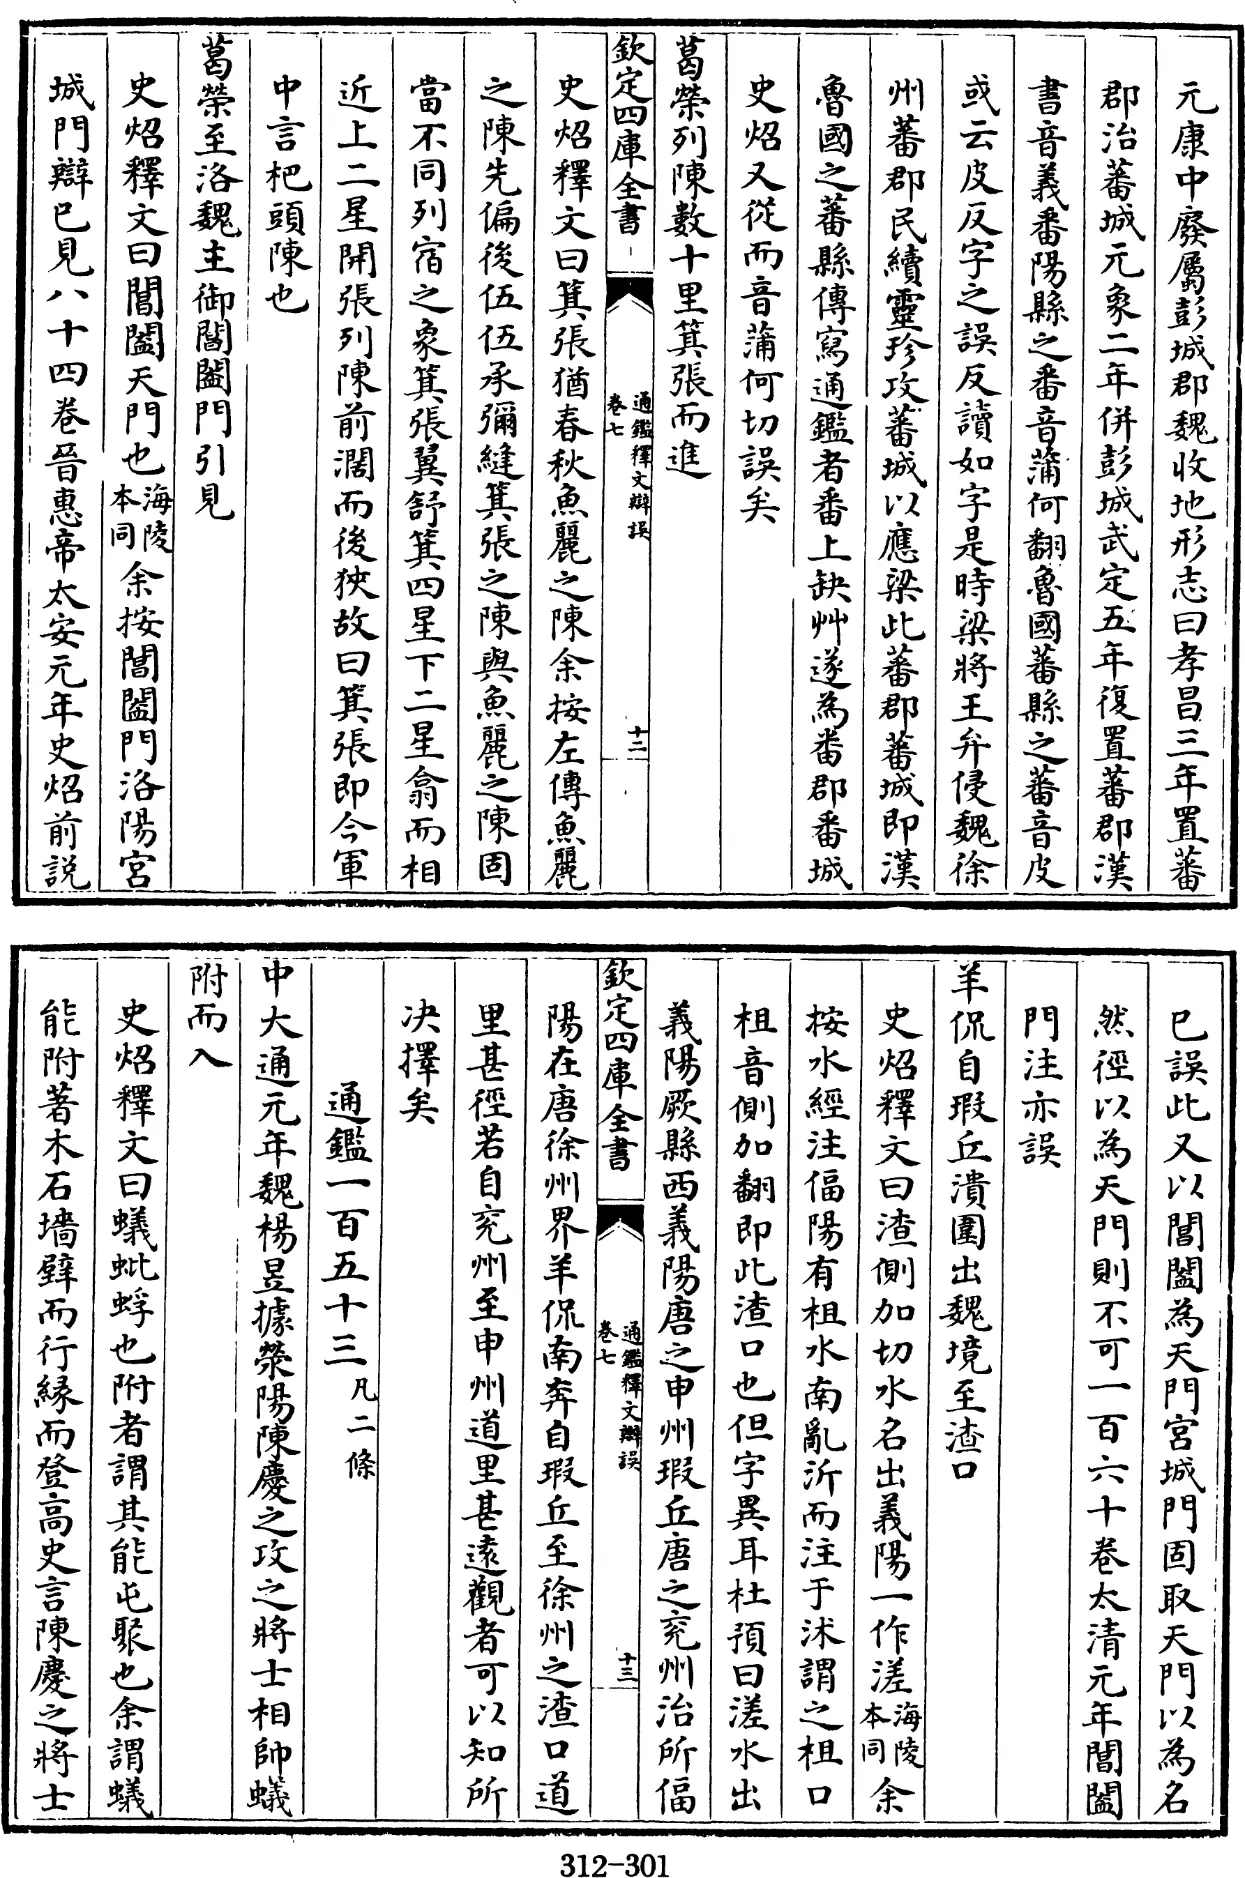 元康中廢屬彭城郡魏收地形志曰孝昌三年置蕃
郡治蕃城元象二年併彭城武定五年復置蕃郡漢
書音義番陽縣之番音蒲何翻魯國蕃縣之蕃音皮
或云皮反字之誤反讀如字是時梁將王弁侵魏徐
州蕃郡民續靈珍攻蕃城以應梁此蕃郡蕃城即漢
魯國之蕃縣傳寫通鑑者番上缺艸遂為番郡番城
史炤又從而音蒲何切誤矣
葛榮列陳數十里箕張而進
欽定四庫全書
通鑑釋文辯誤
卷七
十二
史炤釋文曰箕張猶春秋魚麗之陳余按左傳魚麗
之陳先偏後伍伍承彌縫箕張之陳與魚麗之陳固
當不同列宿之象箕張翼舒箕四星下二星翕而相
近上二星開張列陳前濶而後狹故曰箕張即今軍
中言杷頭陳也
葛榮至洛魏主御閶闔門引見
史炤釋文曰閶闔天門也海陵本同余按閶闔門洛陽宮
城門辯已見八十四卷晉惠帝太安元年史炤前説
已誤此又以閶闔為天門宮城門固取天門以為名
然徑以為天門則不可一百六十卷太清元年閶闔
門注亦誤
羊侃自瑕丘潰圍出魏境至渣口
史炤釋文曰渣側加切水名出義陽一作溠海陵本同余
按水經注偪陽有柤水南亂沂而注于沭謂之柤口
柤音側加翻即此渣口也但字異耳杜預曰溠水出
義陽厥縣西義陽唐之申州瑕丘唐之兖州治所偪
欽定四庫全書
通鑑釋文辯誤
卷七
十三
陽在唐徐州界羊侃南奔自瑕丘至徐州之渣口道
里甚徑若自兖州至申州道里甚遠觀者可以知所
决擇矣
通鑑一百五十三凡二條
中大通元年魏楊昱據滎陽陳慶之攻之將士相帥蟻
附而入
史炤釋文曰蟻蚍蜉也附者謂其能屯聚也余謂蟻
能附著木石墻壁而行緣而登高史言陳慶之將士
312-301